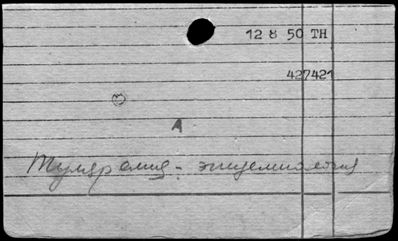 12 8 50 TH
427421
A
Туляремия - эпидемиология